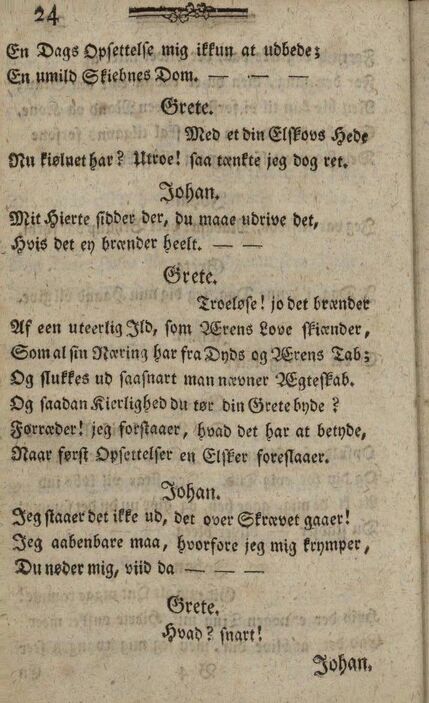 24
En Dags Opsettelse mig ikkun at udbede;
En umild Skiebnes Dom. — — —
Grete.
Med et din Elskovs Hede
Nu kiølnet har? Utroe! saa tænkte jeg dog ret.
Johan.
Mit Hierte sidder der, du maae udrive det,
Hvis det ey brænder heelt. — —
Grete.
Troeløse! jo det brænder
Af een uteerlig Ild, som Ærens Love skiænder,
Som al sin Næring har fra Dyds og Ærens Tab;
Og slukkes ud saasnart man nævner Ægteskab.
Og saadan Kierlighed du tør din Grete byde?
Forræder! jeg forstaaer, hvad det har at betyde,
Naar først Opsettelser en Elsker foreslaaer.
Johan.
Jeg staaer det ikke ud, det over Skrævet gaaer!
Jeg aabenbare maa, hvorfore jeg mig krymper,
Du nøder mig, viid da — — —
Grete.
Hvad? snart!
Johan.